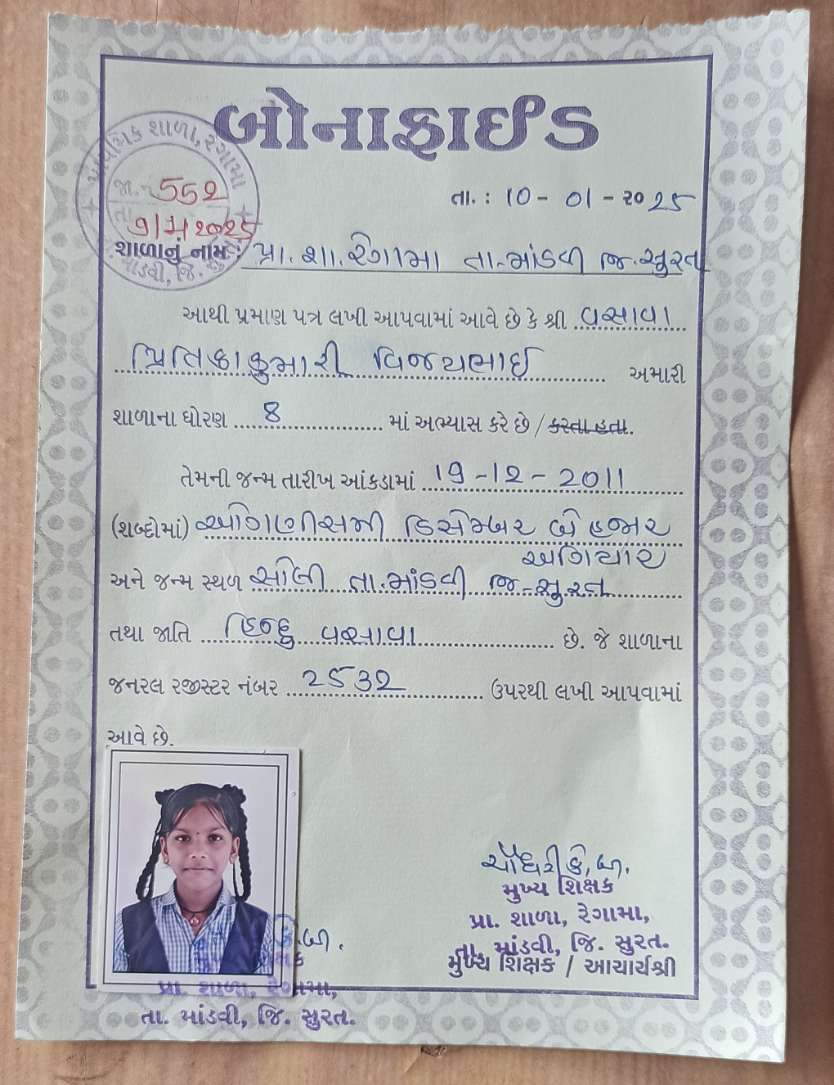 બોનાફાઈડ
પ્રાથમિક શાળા, રેગામા
જા.નં 552
તા 9/1/2025
માંડવી, જિ. સુરત
તા. : 10 - 01 - 2025
શાળાનું નામ : પ્રા. શા. રેગામા તા-માંડવી જિ. સુરત
આથી પ્રમાણ પત્ર લખી આપવામાં આવે છે કે શ્રી વસાવા
પ્રિતિકાકુમારી વિજયભાઈ અમારી
શાળાના ધોરણ 8 માં અભ્યાસ કરે છે / કરતા હતા.
તેમની જન્મ તારીખ આંકડામાં 19-12-2011
(શબ્દોમાં) ઓગણીસમી ડિસેમ્બર બે હજાર
અગિયાર
અને જન્મ સ્થળ સોલી તા. માંડવી જિ-સુરત
તથા જાતિ હિન્દુ વસાવા છે. જે શાળાના
જનરલ રજીસ્ટર નંબર 2532 ઉપરથી લખી આપવામાં
આવે છે.
ચૌધરી કે. બી.
મુખ્ય શિક્ષક
પ્રા. શાળા, રેગામા,
તા. માંડવી, જિ. સુરત.
મુખ્ય શિક્ષક / આચાર્યશ્રી
કે.બી.
પ્રા. શાળા, રેગામા,
તા. માંડવી, જિ. સુરત.